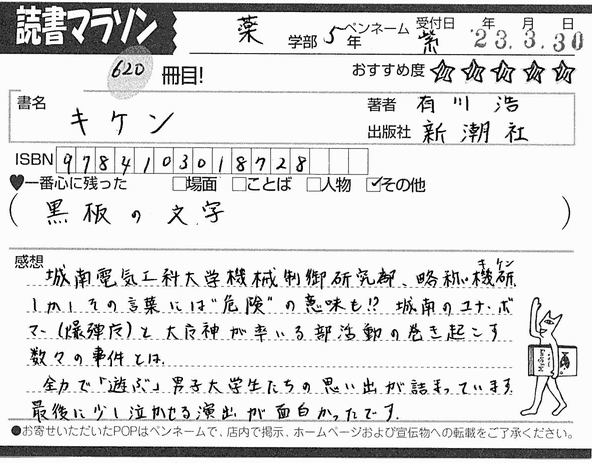 読書マラソン
薬 学部 5年 ペンネーム 紫 受付日 '23年 3月 30日
620 冊目!
おすすめ度 ☆☆☆☆☆
書名 キケン
著者 有川 浩
出版社 新潮社
ISBN 9784103018728
♥一番心に残った □場面 □ことば □人物 ☑その他
( 黒板の文字 )
感想
城南電気工科大学機械制御研究部、略称"機研(キケン)
しかしその言葉には"危険"の意味も!? 城南のユナ・ボ
マー(爆弾魔)と大魔神が率いる部活動の巻き起こす
数々の事件とは.
全力で「遊ぶ」男子大学生たちの思い出が詰まっています.
最後に少し泣かせる演出が面白かったです.
●お寄せいただいたPOPはペンネームで、店内で掲示、ホームページおよび宣伝物への転載をご了承ください。